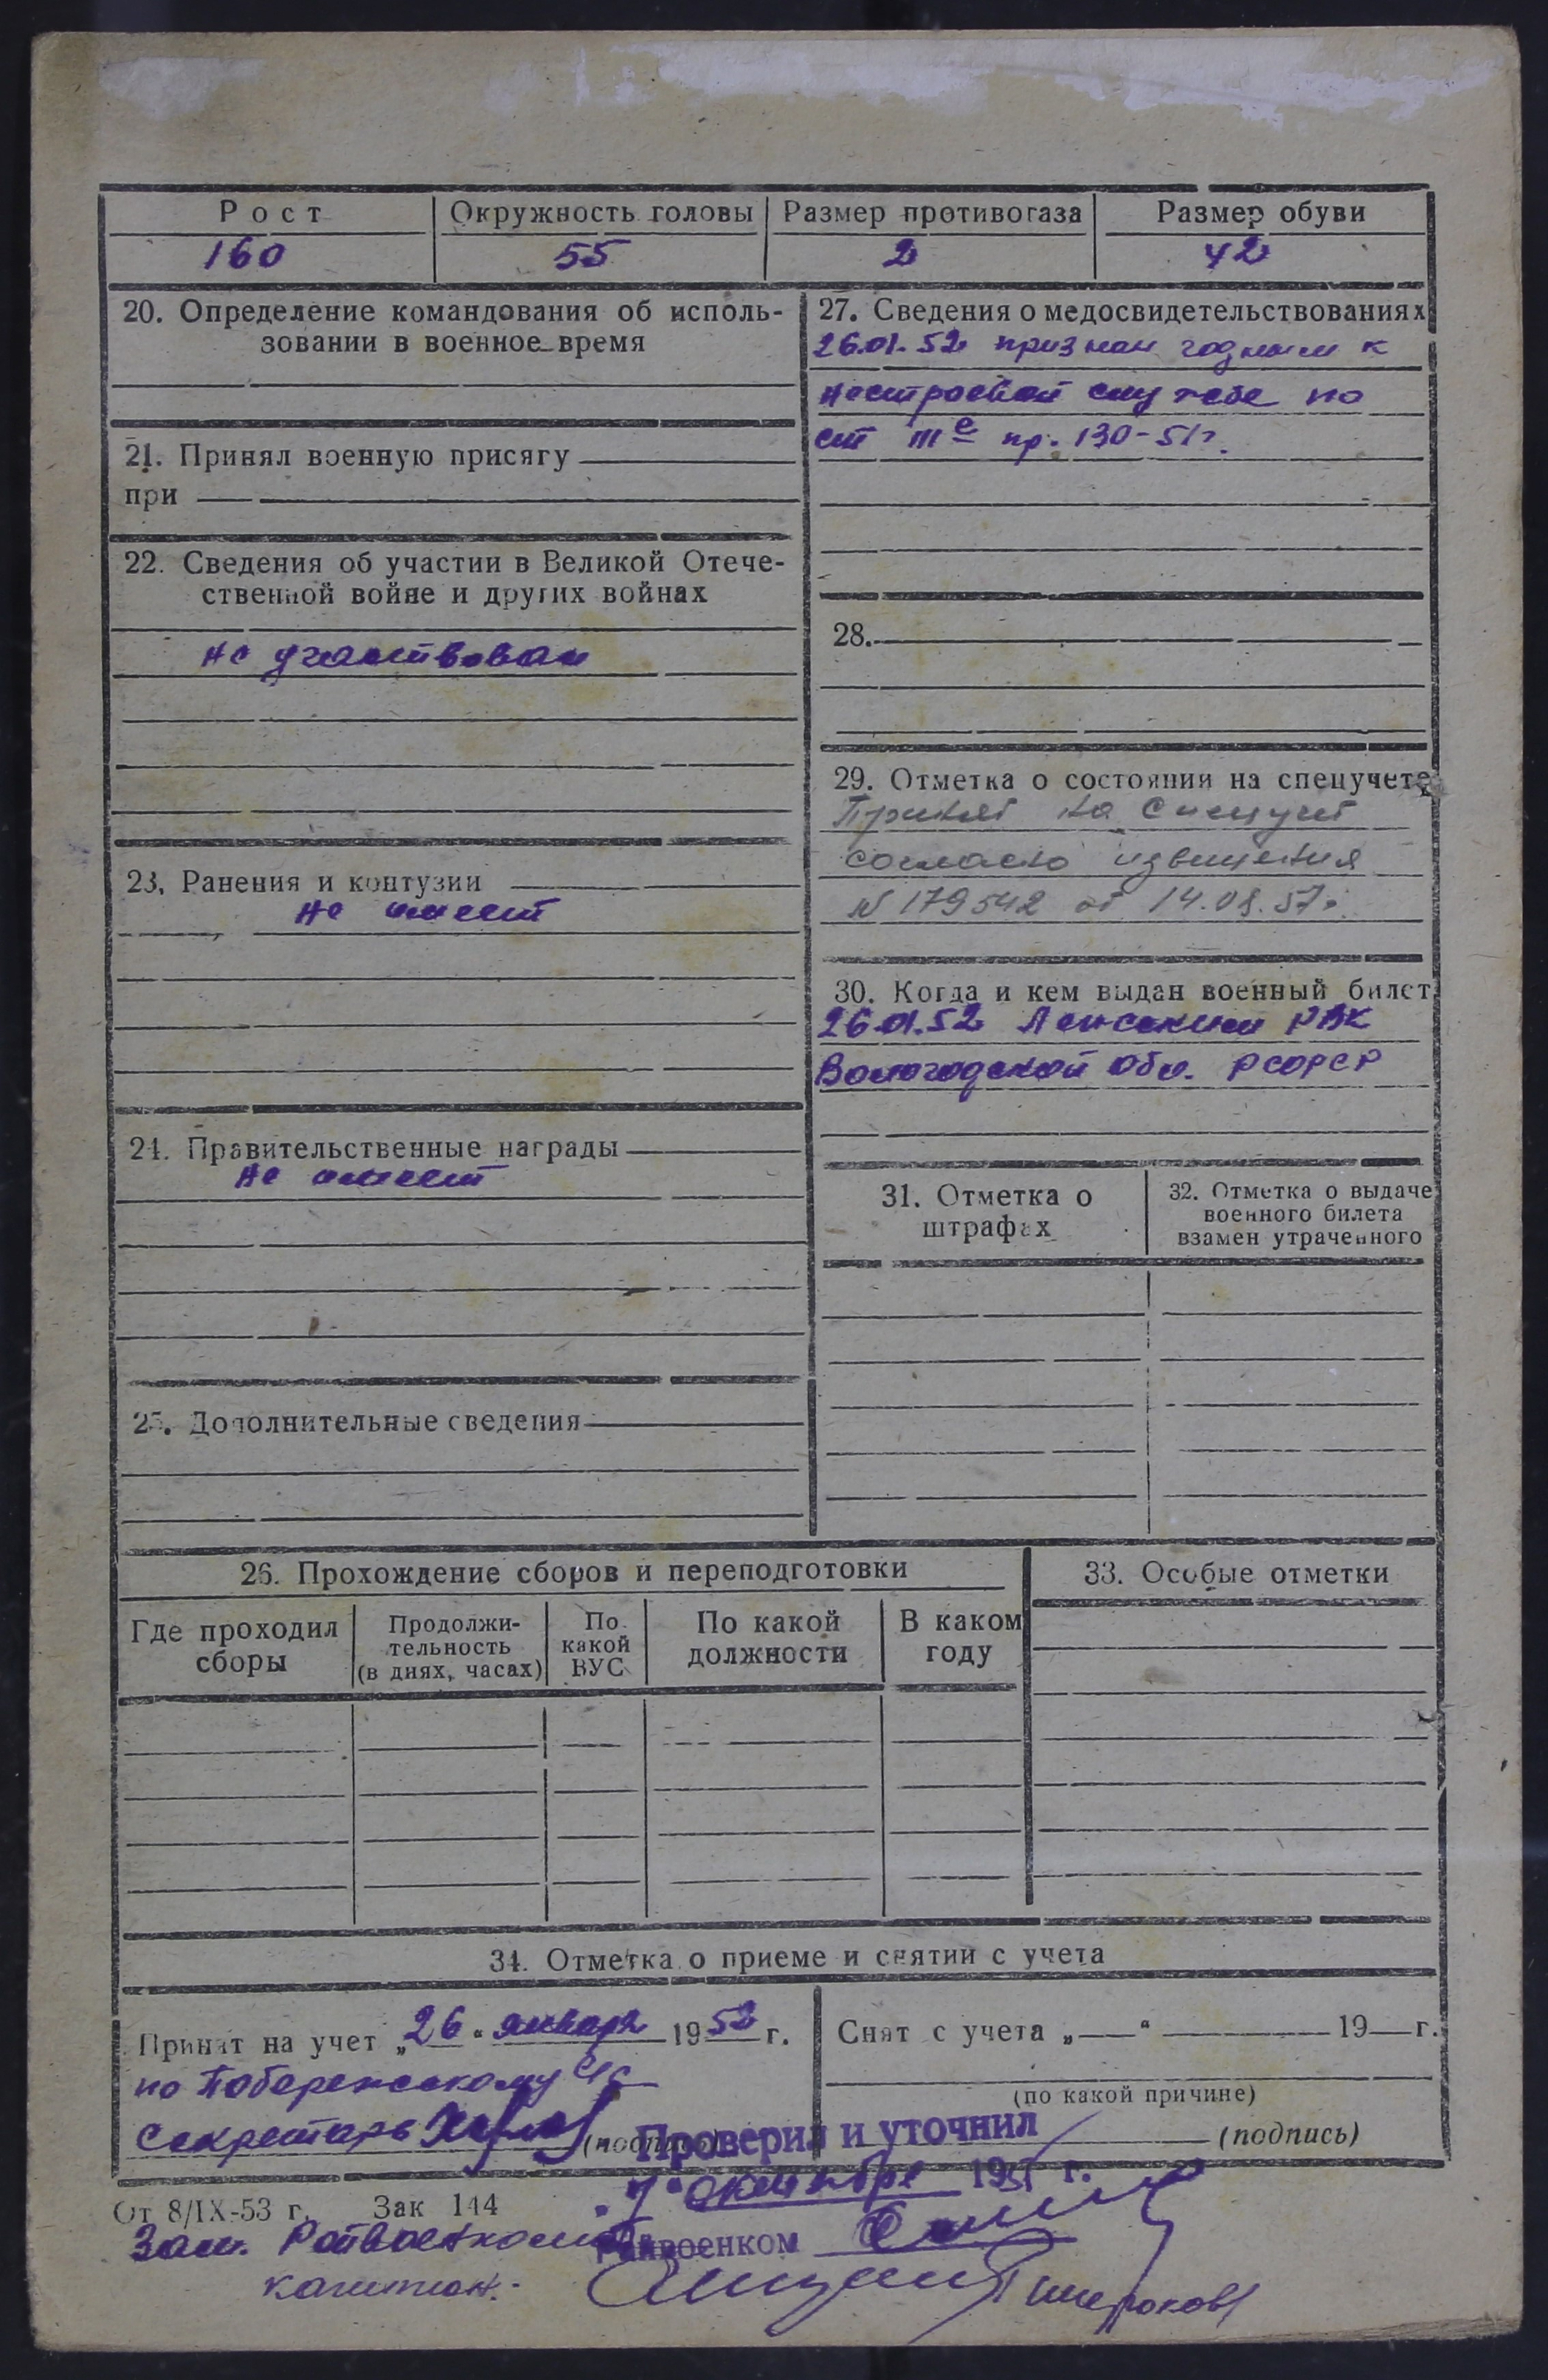 Рост Окружность головы Размер противогаза Размер обуви
160 55 2 42
20. Определение командования об исполь-
зовании в военное время
21. Принял военную присягу
при
22. Сведения об участии в Великой Отече-
ственной войне и других войнах
не участвовал
23. Ранения и контузии
не имеет
24. Правительственные награды
не имеет
25. Дополнительные сведения
27. Сведения о медосвидетельствованиях
26.01.52 признан годным к
нестроевой службе по
ст IIIе пр. 130-51г.
28.
29. Отметка о состоянии на спецучете
Принят на спецучет
согласно извещения
N 179542 от 14.08.57г.
30. Когда и кем выдан военный билет
26.01.52 Ленским РВК
Вологодской обл. РСФСР
31. Отметка о
штрафах
32. Отметка о выдаче
военного билета
взамен утраченного
26. Прохождение сборов и переподготовки
Где проходил
сборы
Продолжи-
тельность
(в днях, часах)
По
какой
ВУС
По какой
должности
В каком
году
33. Особые отметки
34. Отметка о приеме и снятии с учета
Принят на учет „26" января 1952 г.
по
секретарь
(подпись)
Снят с учета „ " 19 г.
(по какой причине)
(подпись)
Проверил и уточнил
октября 195 г.
Райвоенком
От 8/IX-53 г. Зак 144
Зам. Райвоенкома
капитан: